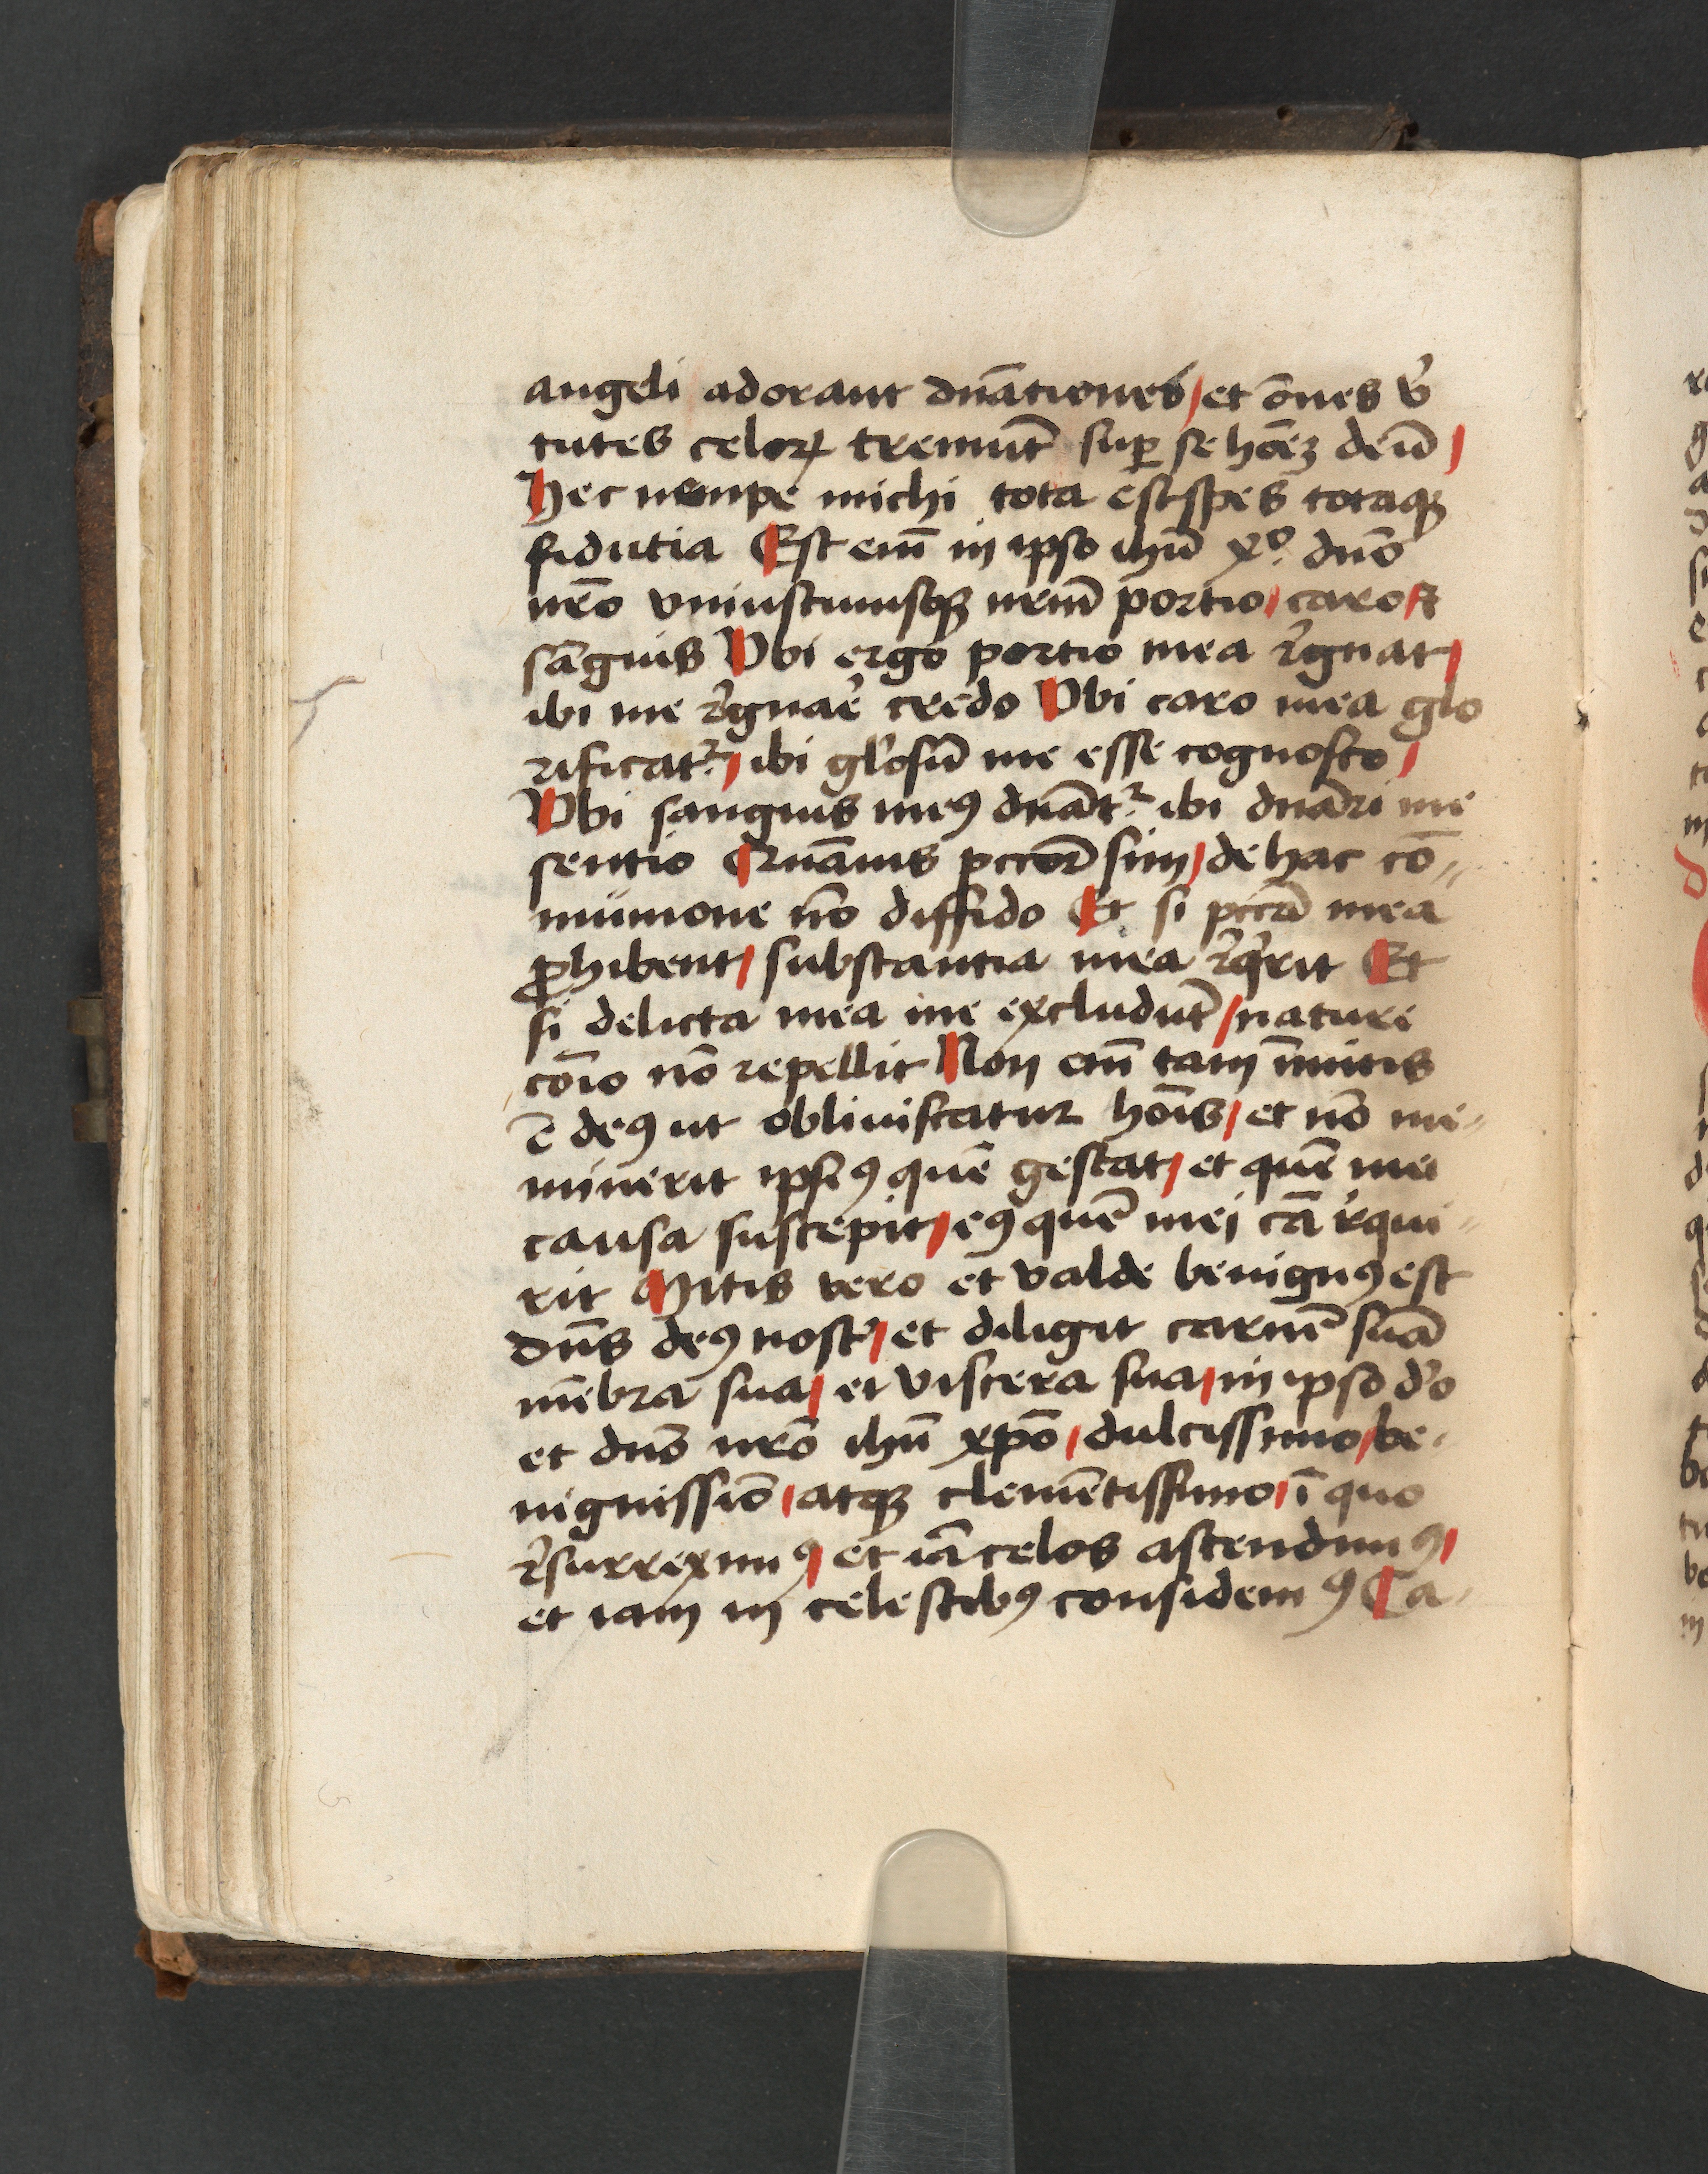 angeli adorant dn̄ationes / et om̄es v̓
tutes celoꝝ tremūt suꝑ se hoī̄eꝫ deū /
Hec nempe michi tota est spes totaqꝫ
fidutia Est em̄ in ipso ihū xᵒ. dn̄o
nr̄o vniuscuiusqꝫ nr̄m̄ portio / caro &
sāguis Vbi ergo portio mea r̓gnat /
ibi me r̓gnar̓ credo Vbi caro mea glo
rificatᷣ / ibi gl̓osū me esse cognosco /
Vbi sanguis meꝰ dn̄atᷣ ibi dn̄ari me
sentio Quāuis pccor̄ sim / de hac cō⸗
munione nō diffido Et si pccā mea
ꝓhibent / substantia mea r̓q̓rit Et
si delicta mea me excludūt / nature
coīo nō repellit Non em̄ tam īmitis
ē deꝰ ut obliuiscatur hoīs / et nō me⸗
minerit ipsiꝰ quē gestat / et quē mei
causa suscepit / eꝰ quē mei cā r̓qui⸗
rit Mitis vero et valde benignꝰ est
dn̄s deꝰ nost̓ / et diligit carnē suā
mēbra sua / et viscera sua / in ipso d̓o
et dn̄o nr̄o ihū xp̄o / dulcissimo / be⸗
nignissiō / atqꝫ clemētissimo / ī quo
r̓surreximꝰ / et iā celos ascendimꝰ /
et iam in celestibꝰ considemꝰ Ca⸗